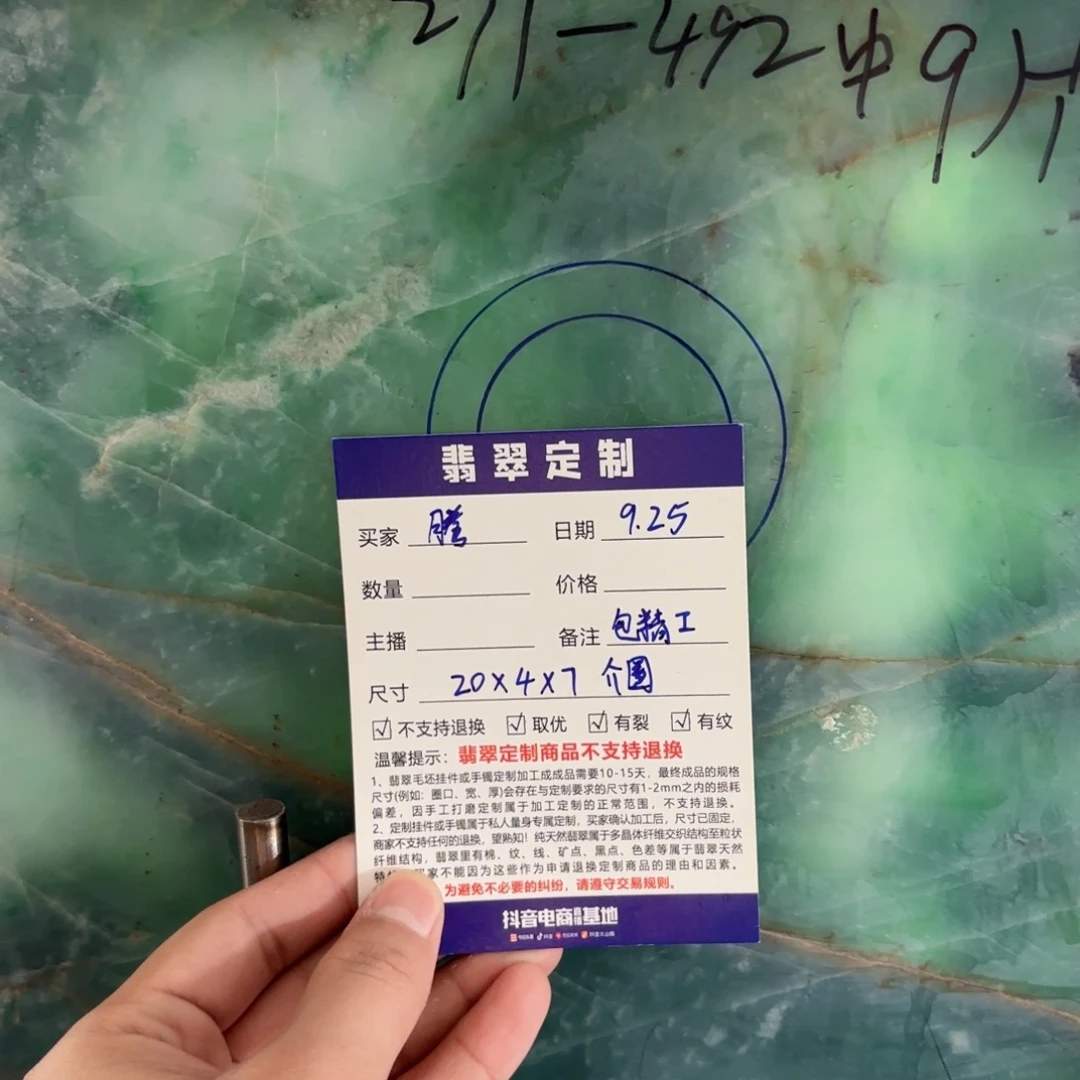 211-492中9片
翡翠定制
买家 腾 日期 9.25
数量 价格
主播 备注 包精工
尺寸 20x4x7 介圆
不支持退换 取优 有裂 有纹
温馨提示：翡翠定制商品不支持退换
1、翡翠毛坯挂件或手镯定制加工成成品需要10-15天，最终成品的规格
尺寸(例如：圈口、宽、厚)会存在与定制要求的尺寸有1-2mm之内的损耗
偏差，因手工打磨定制属于加工定制的正常范围，不支持退换。
2、定制挂件或手镯属于私人量身专属定制，买家确认加工后，尺寸已固定，
商家不支持任何的退换，望熟知！纯天然翡翠属于多晶体纤维交织结构至粒状
纤维结构，翡翠里有棉、纹、线、矿点、黑点、色差等属于翡翠天然
家不能因为这些作为申请退换定制商品的理由和因素。
为避免不必要的纠纷，请遵守交易规则。
抖音电商直播基地